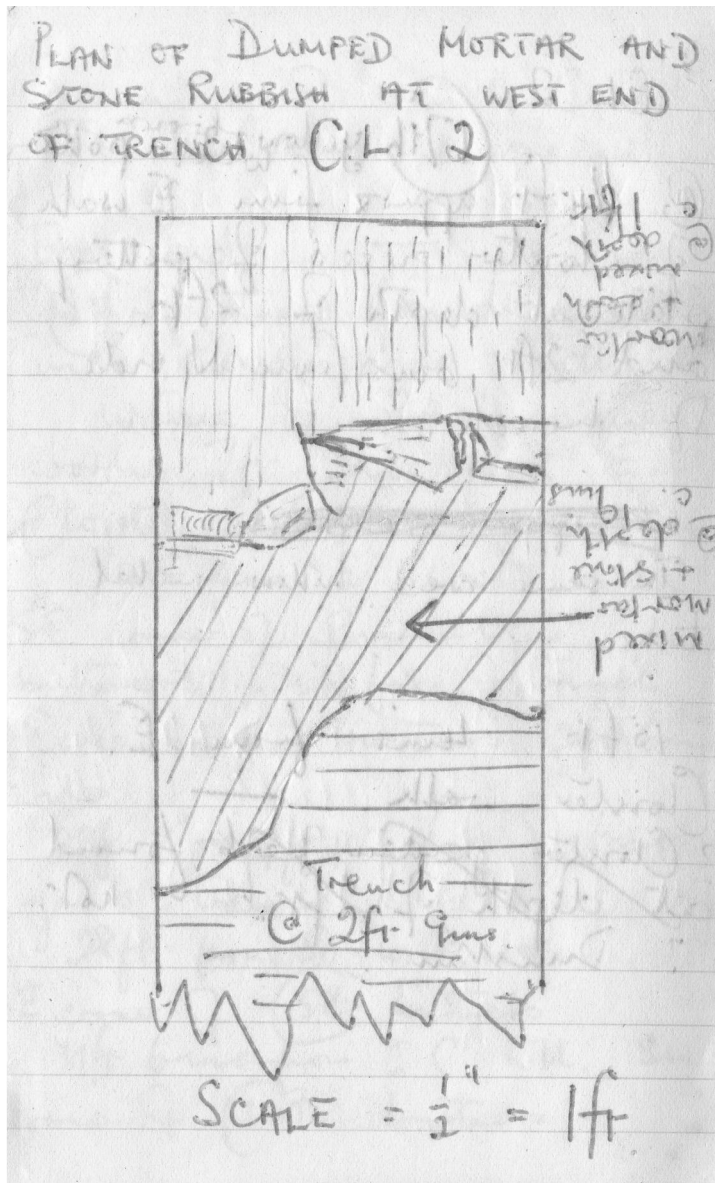 PLAN OF DUMPED MORTAR AND
STONE RUBBISH AT WEST END
OF TRENCH C.L 2
mortar
+ earth
mixed
@ depth
c 1ft
mixed
mortar
+ stone
@ depth
c. 9ins
Trench
@ 2ft 9ins.
SCALE = 1/2" = 1ft